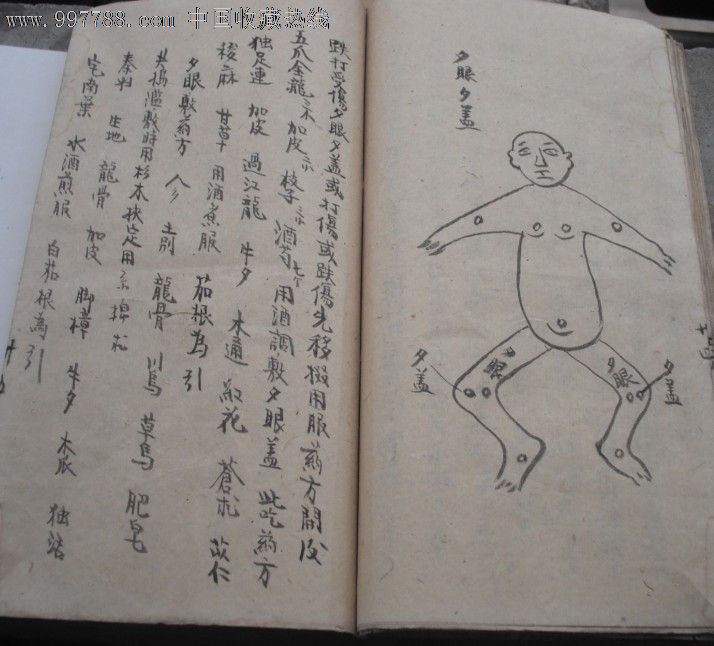 www.997788.com 中国收藏热线
夕眼夕盖
夕盖
夕眼
夕眼
夕盖
跌打受傷夕眼夕盖或打傷或跌傷先移搬用服葯方開後
五爪金龍 加皮 枝子 酒芍 用酒調敷夕眼盖 此吃葯方
独足連 加皮 過江龍 牛夕 木通 紅花 蒼朮 苡仁
梭麻 甘草 用酒煮服 茄根為引
夕眼敷葯方 龍骨 川烏 草烏 肥皂
共搗滥敷時用杉木挾定用
秦归 生地 龍骨 加皮 脚樟 牛夕 木瓜 独活
水酒煎服 白茄根為引